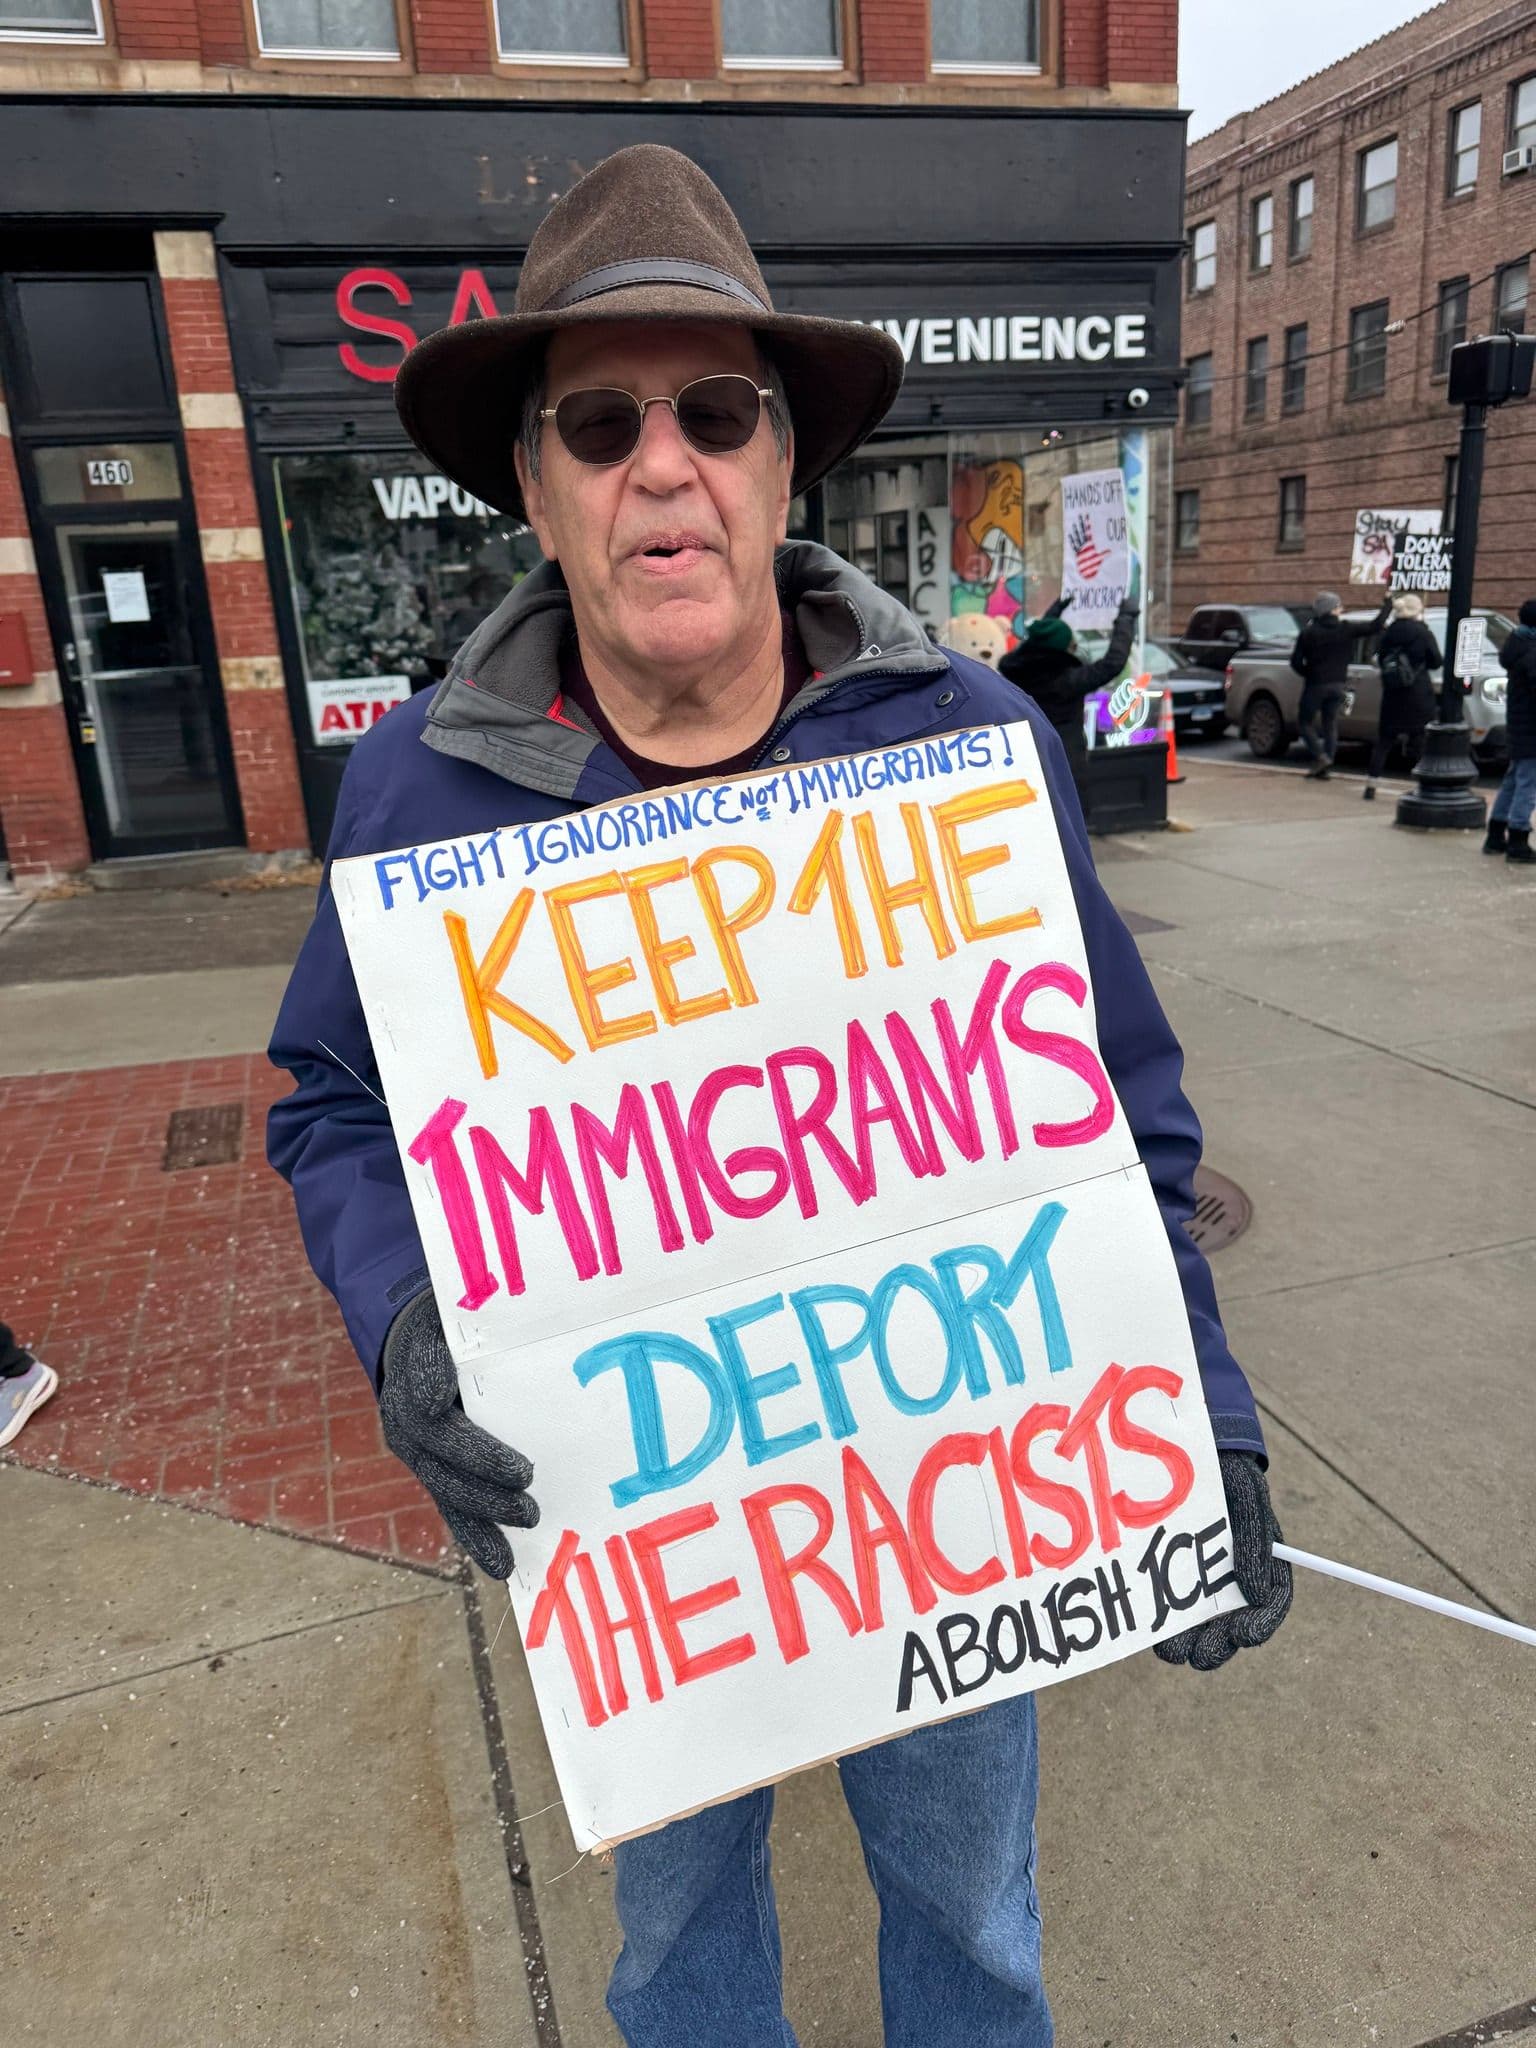 SA
NVENIENCE
460
VAPO
ATM
ABC
HANDS OFF
OUR
DEMOCRACY
Stay
DON'T
TOLERA
INTOLERA
FIGHT IGNORANCE NOT IMMIGRANTS!
KEEP THE
IMMIGRANTS
DEPORT
THE RACISTS
ABOLISH ICE